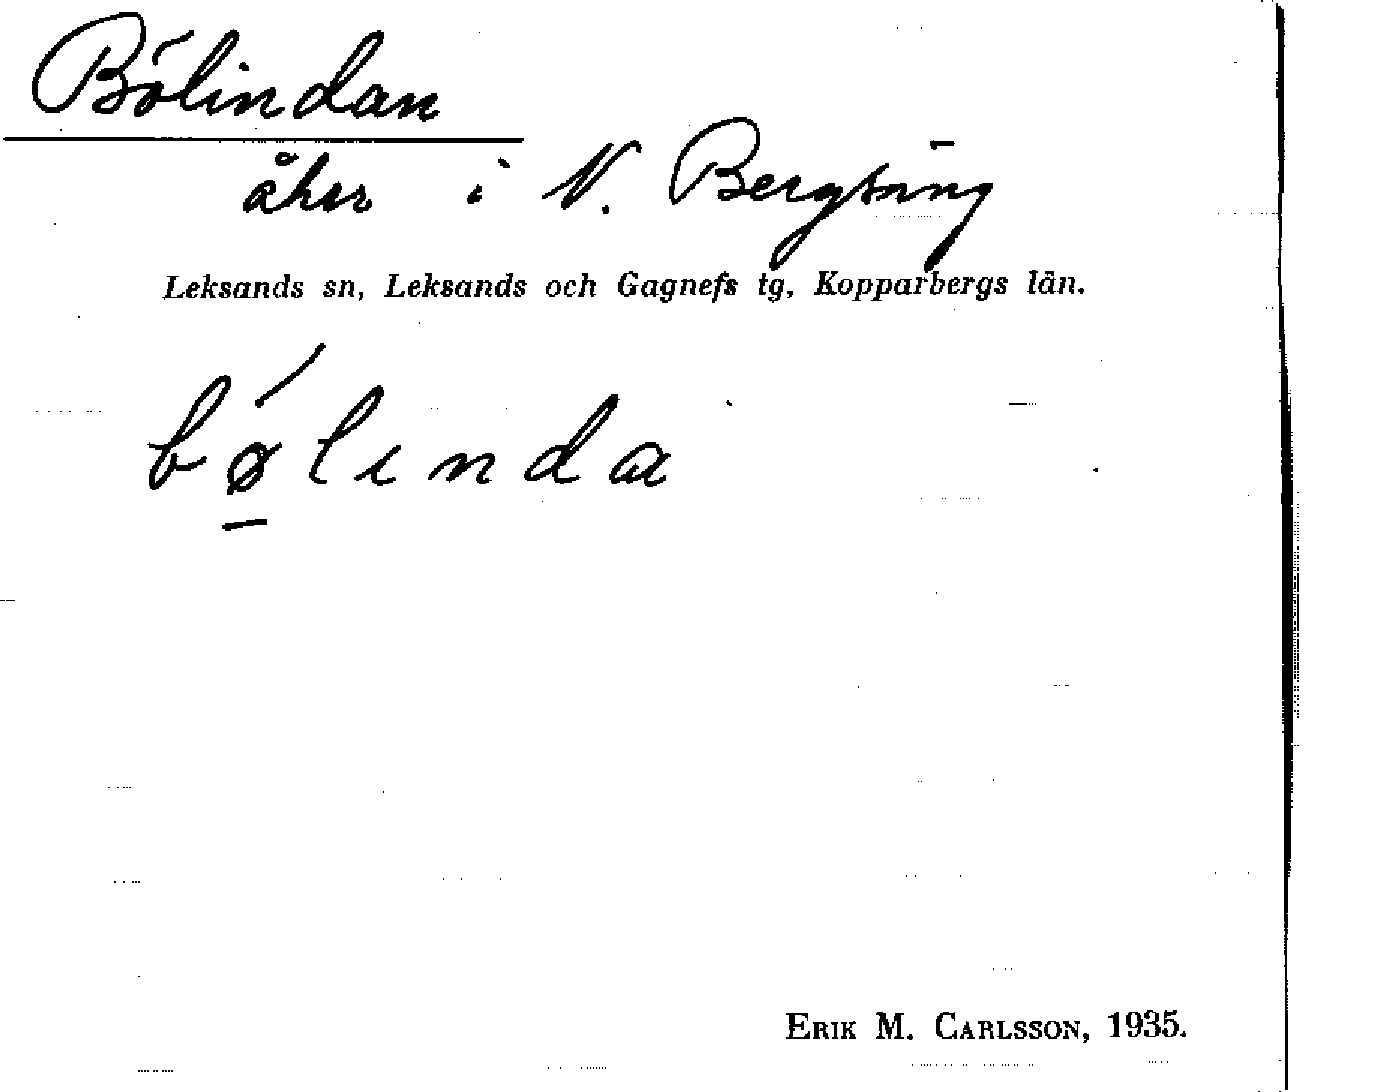 Bölindan
åker i N. Bergsäng
Leksands sn, Leksands och Gagnefs tg, Kopparbergs län.
bǿ̠lɩnda
ERIK M. CARLSSON, 1935.